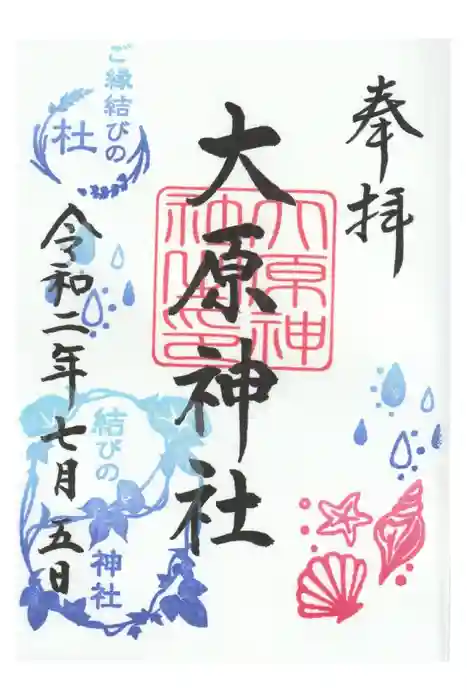 奉拝
大原神社
大原神
社之印
ご縁結びの
杜
令和二年七月五日
結びの
神社